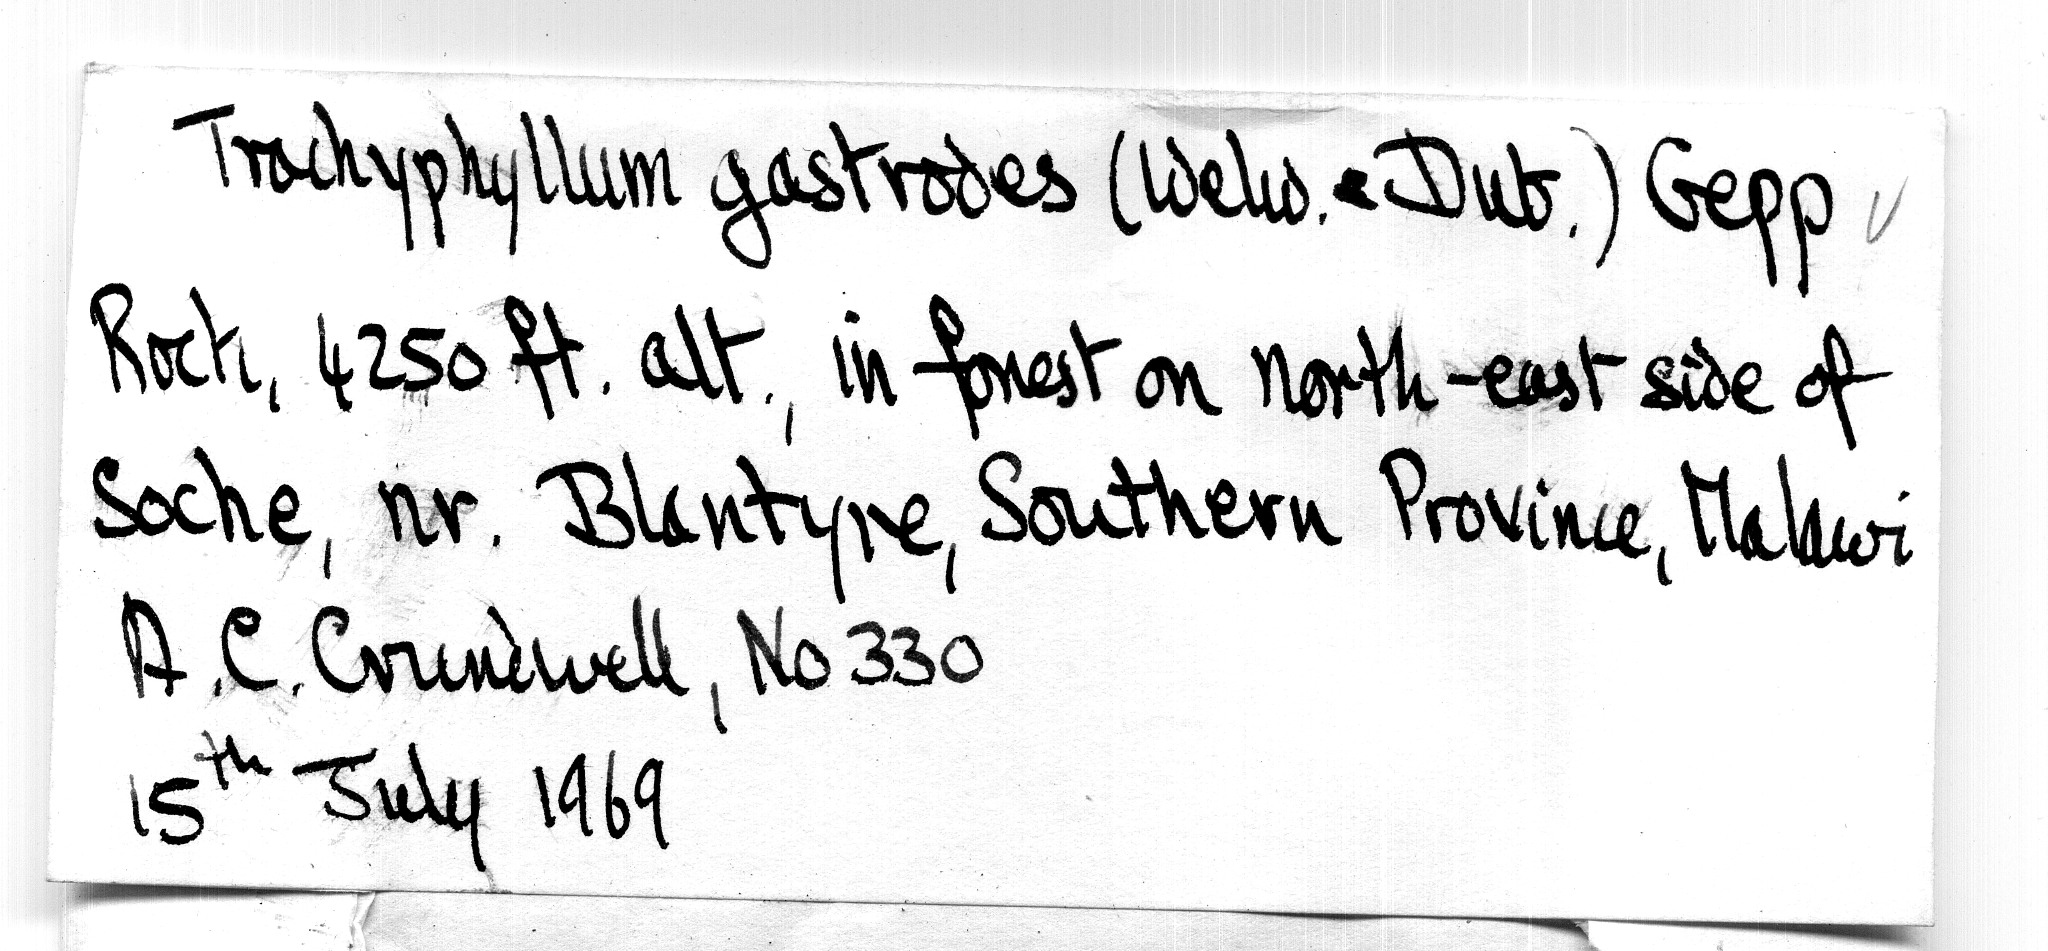 Trachyphyllum gastrodes (Welw. & Dub.) Gepp
Rock, 4250 ft. alt., in forest on north-east side of
Soche, nr. Blantyre, Southern Province, Malawi
A.C. Crundwell, No 330
15th July 1969